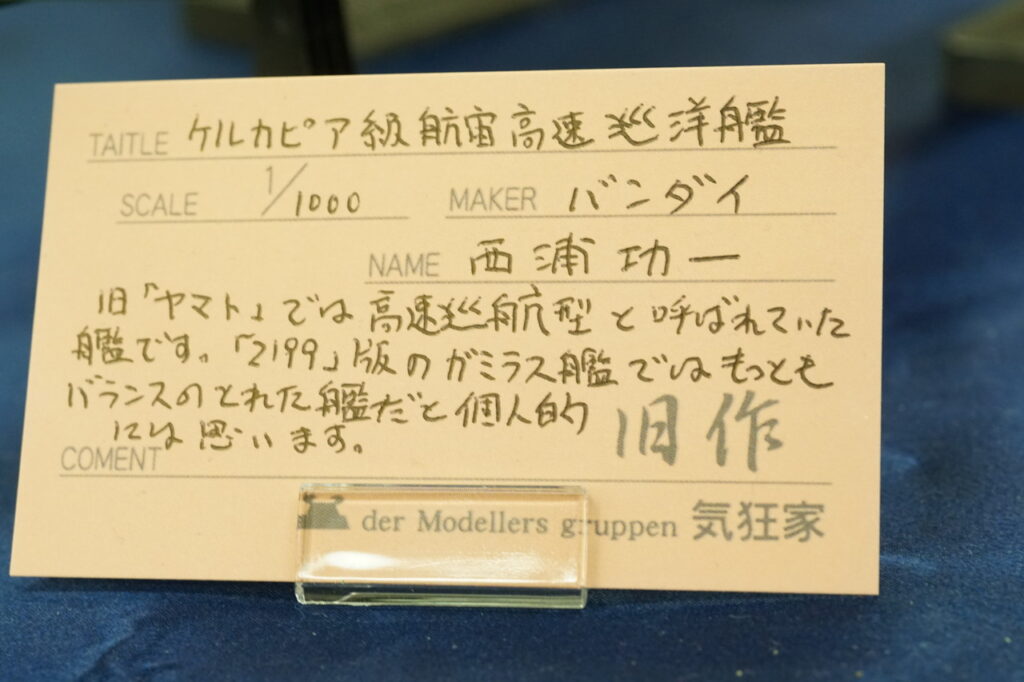 TAITLE ケルカピア級航宙高速巡洋艦
SCALE 1/1000 MAKER バンダイ
NAME 西浦功一
旧「ヤマト」では高速巡航型と呼ばれていた
艦です。「2199」版のガミラス艦ではもっとも
バランスのとれた艦だと個人的
には思います。
旧作
COMENT
der Modellers gruppen 気狂家